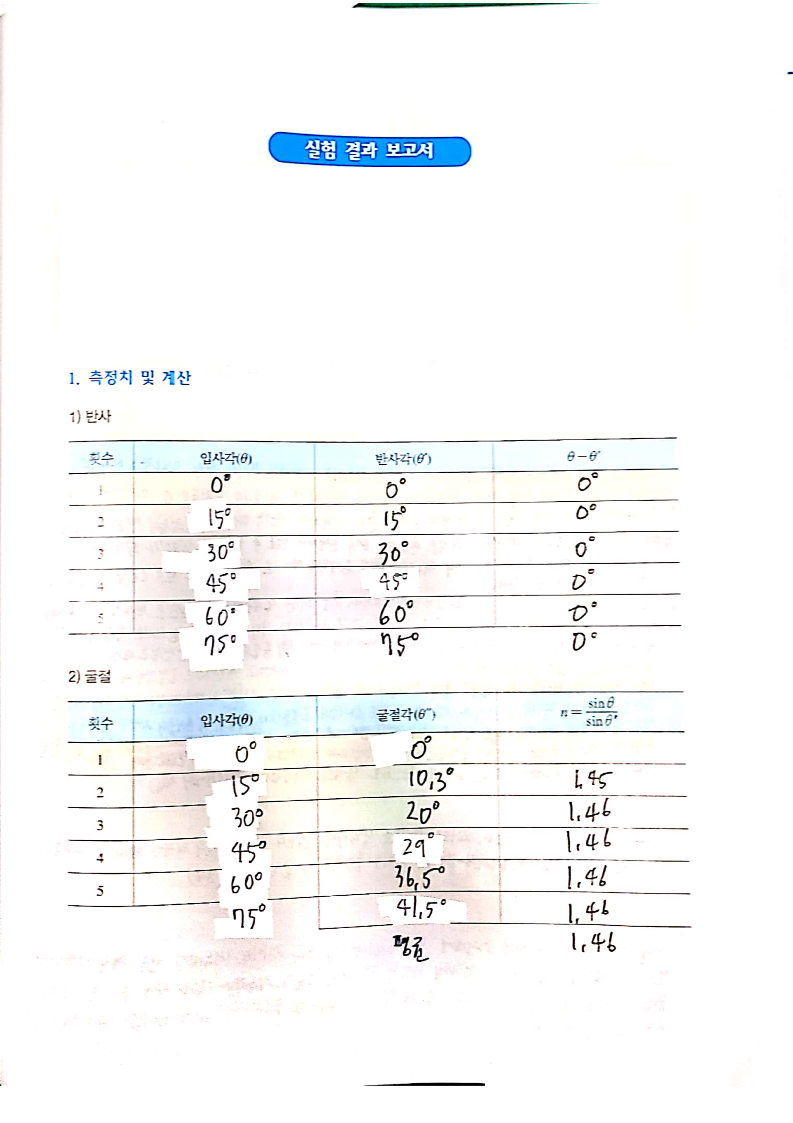 실험 결과 보고서
1. 측정치 및 계산
1) 반사
횟수 입사각(θ) 반사각(θ′) θ-θ′
1 0° 0° 0°
2 15° 15° 0°
3 30° 30° 0°
4 45° 45° 0°
5 60° 60° 0°
75° 75° 0°
2) 굴절
횟수 입사각(θ) 굴절각(θ″) n = sinθ / sinθ″
1 0° 0°
2 15° 10,3° 1,45
3 30° 20° 1,46
4 45° 29° 1,46
5 60° 36,5° 1,46
75° 41,5° 1,46
평균 1,46